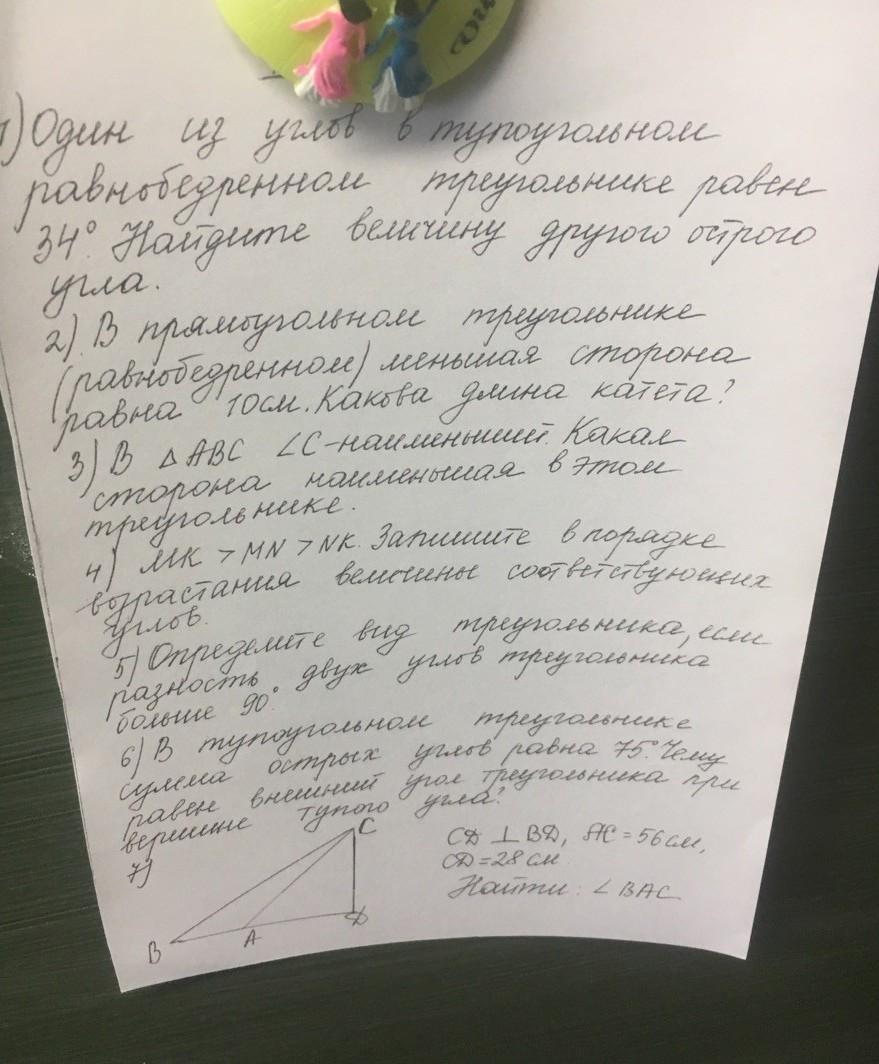 1) Один из углов в тупоугольном
равнобедренном треугольнике равен
34°. Найдите величину другого острого
угла.
2) В прямоугольном треугольнике
(равнобедренном) меньшая сторона
равна 10см. Какова длина катета?
3) В △ABC ∠C-наименьший. Какая
сторона наименьшая в этом
треугольнике.
4) MK > MN > NK. Запишите в порядке
возрастания величины соответствующих
углов.
5) Определите вид треугольника, если
разность двух углов треугольника
больше 90°.
6) В тупоугольном треугольнике
сумма острых углов равна 75°. Чему
равен внешний угол треугольника при
вершине тупого угла?
7)
C
B
A
D
CD ⊥ BD, AC = 56 см,
CD = 28 см
Найти: ∠BAC